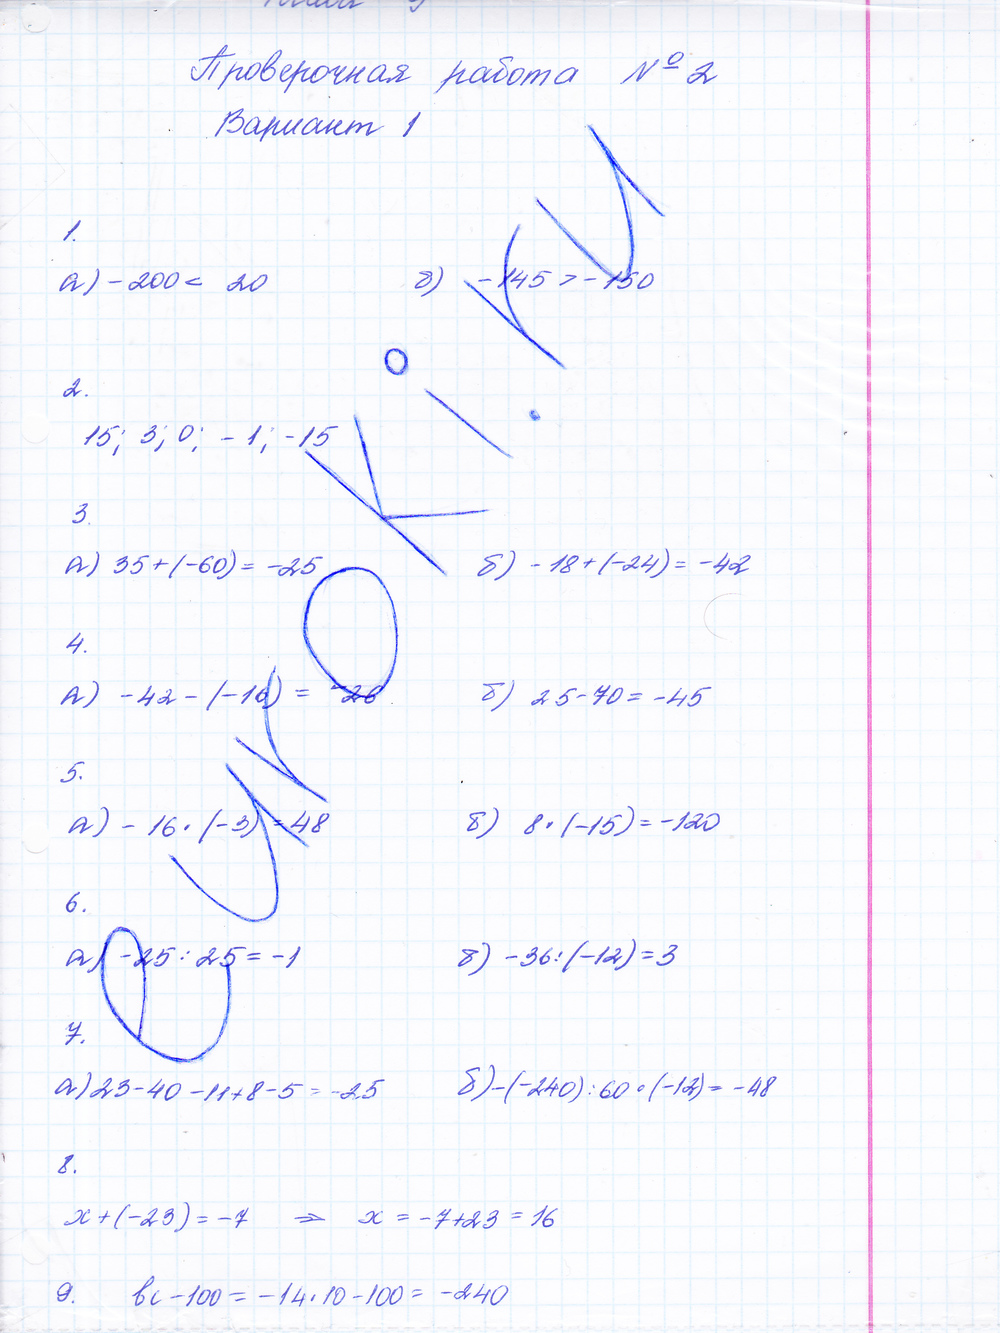 Проверочная работа № 2
Вариант 1
1.
а) -200 < 20 б) -145 > -150
2.
15; 3; 0; -1; -15
3.
а) 35+(-60) = -25 б) -18+(-24) = -42
4.
а) -42-(-16) = -26 б) 25-70 = -45
5.
а) -16·(-3) = 48 б) 8·(-15) = -120
6.
а) -25:25 = -1 б) -36:(-12) = 3
7.
а) 23-40-11+8-5 = -25 б) -(-240):60·(-12) = -48
8.
x+(-23) = -7 ⇒ x = -7+23 = 16
9. bc-100 = -14·10-100 = -240
eurOKi.ru